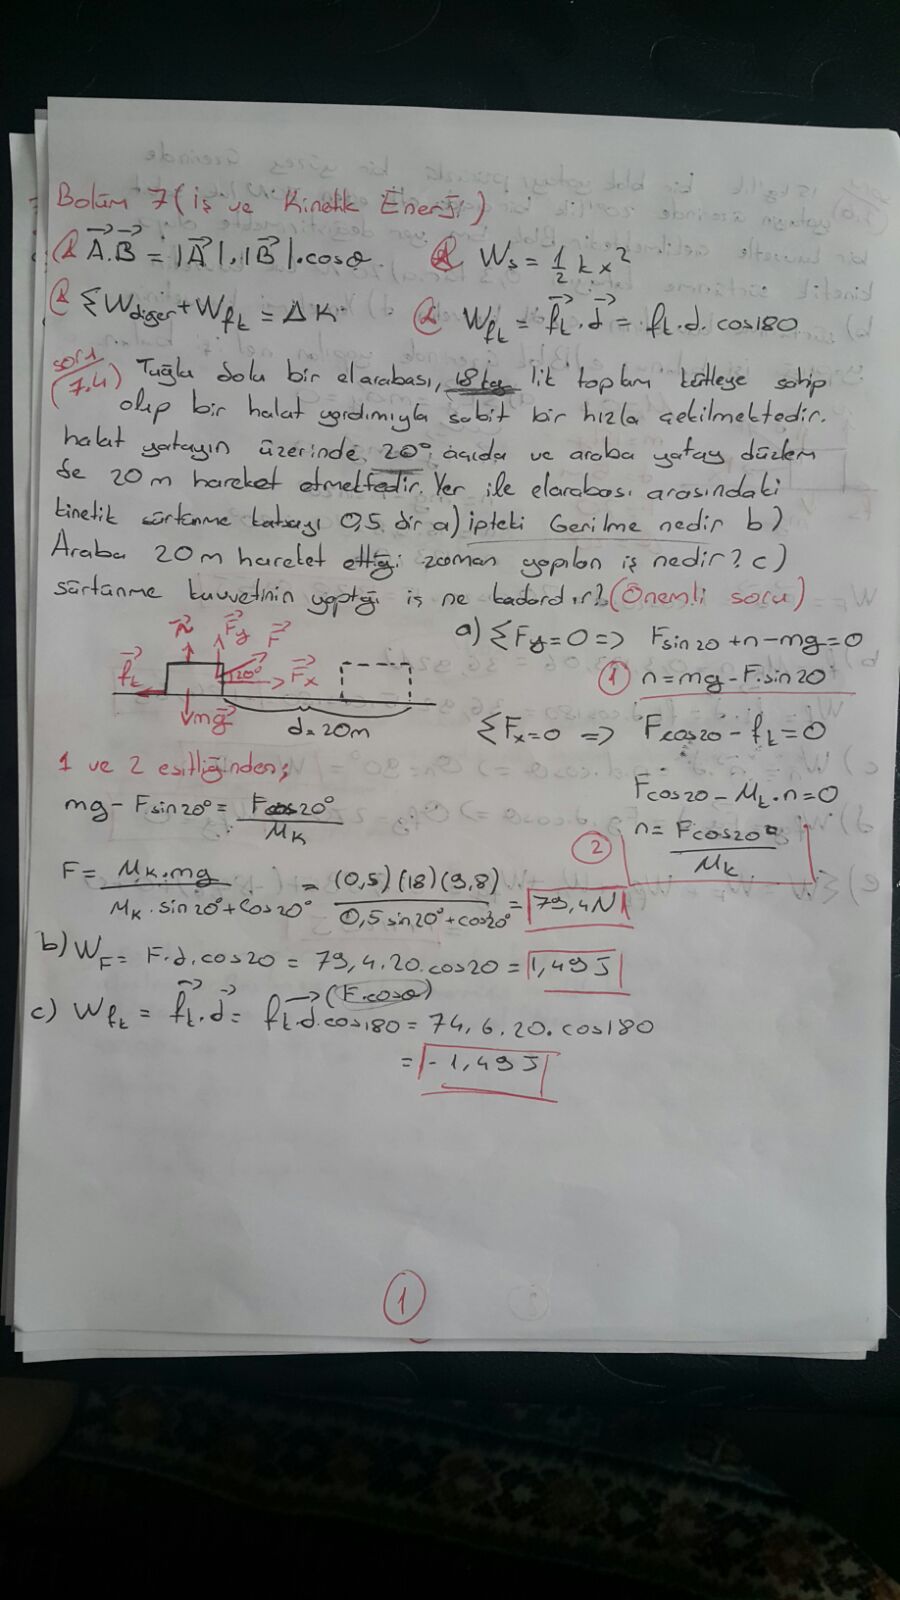 Bölüm 7 (İş ve Kinetik Enerji)
A.B = |A|.|B|.cosθ
Ws = 1/2 kx²
ΣWdiğer + Wfk = ΔK
Wfk = fk.d = fk.d.cos180
soru (7.4) Tuğla dolu bir elarabası, 18 kg lık toplam kütleye sahip
olup bir halat yardımıyla sabit bir hızla çekilmektedir.
halat yatayın üzerinde 20° açıda ve araba yatay düzlem
de 20 m hareket etmektedir. Yer ile elarabası arasındaki
kinetik sürtünme katsayı 0,5 dir a) ipteki Gerilme nedir b)
Araba 20 m hareket ettiği zaman yapılan iş nedir? c)
sürtünme kuvvetinin yaptığı iş ne kadardır? (Önemli soru)
n Fy F
fk 20° Fx
mg
d = 20m
a) ΣFy=0 => Fsin20 + n - mg = 0
① n = mg - F.sin20
ΣFx=0 => Fcos20 - fk = 0
Fcos20 - Mk.n = 0
② n = Fcos20° / Mk
1 ve 2 eşitliğinden;
mg - Fsin20° = Fcos20° / MK
F = MK.mg / MK.sin20° + Cos20° = (0,5)(18)(9,8) / 0,5sin20° + cos20° = 79,4N
b) WF = F.d.cos20 = 79,4.20.cos20 = 1,49J
(F.cosθ)
c) Wfk = fk.d = fk.d.cos180 = 74,6.20.cos180
= -1,49J
1